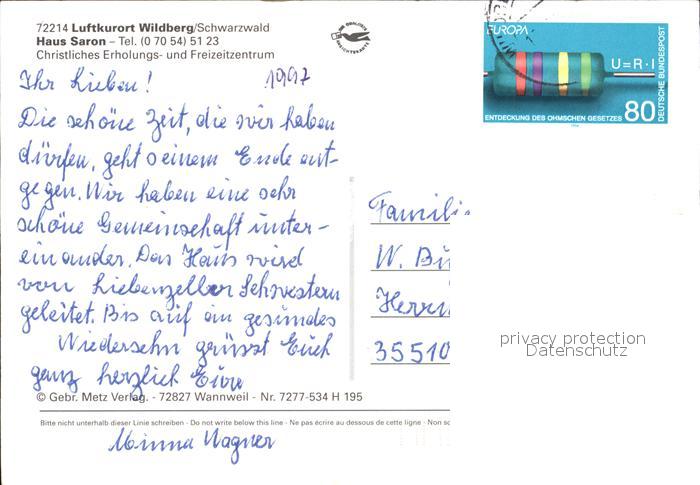 72214 Luftkurort Wildberg/Schwarzwald
Haus Saron – Tel. (0 70 54) 51 23
Christliches Erholungs- und Freizeitzentrum
EUROPA
U=R·I
DEUTSCHE BUNDESPOST
ENTDECKUNG DES OHMSCHEN GESETZES 80
Ihr Lieben! 1997
Die schöne Zeit, die wir haben
dürfen, geht seinem Ende ent-
gegen. Wir haben eine sehr
schöne Gemeinschaft unter-
einander. Das Haus wird
von Liebenzeller Schwestern
geleitet. Bis auf ein gesundes
Wiedersehn grüsst Euch
ganz herzlich Eure
Minna Wagner
Famili
W. Bu
Herrn
35510
privacy protection
Datenschutz
© Gebr. Metz Verlag. - 72827 Wannweil - Nr. 7277-534 H 195
Bitte nicht unterhalb dieser Linie schreiben - Do not write below this line - Ne pas écrire au dessous de cette ligne - Non sc